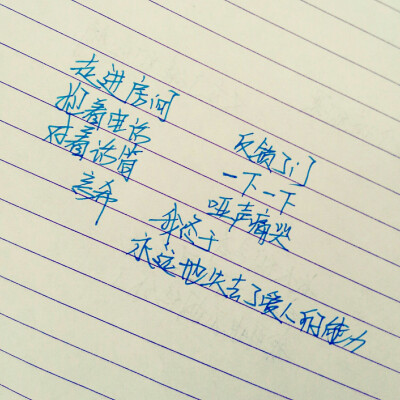 走进房间 反锁了门
抱着电话 一下一下
对着话筒 哑声痛哭
言希 我终于
永远地失去了爱人的能力